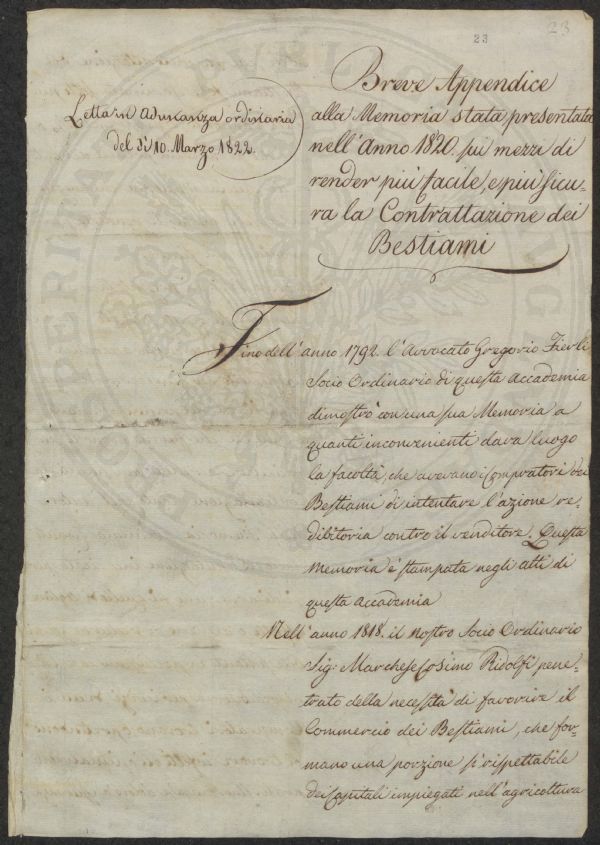 23
23
Letta in Adunanza ordinaria
del dì 10. Marzo 1822.
Breve Appendice
alla Memoria stata presentata
nell'Anno 1820. sui mezzi di
render più facile, e più sicu-
ra la Contrattazione dei
Bestiami
Fino dell'anno 1792. l'Avvocato Gregorio Fierli
Socio Ordinario di questa Accademia
dimostrò con una sua Memoria a
quanti inconvenienti dava luogo
la facoltà, che avevano i Compratori dei
Bestiami di intentare l'azione re-
dibitoria contro il venditore. Questa
Memoria è stampata negli atti di
questa Accademia
Nell'anno 1818. il nostro Socio Ordinario
Sig: Marchese Cosimo Ridolfi pene-
trato della necessità di favorire il
Commercio dei Bestiami, che for-
mano una porzione sì rispettabile
dei Capitali impiegati nell'agricoltura